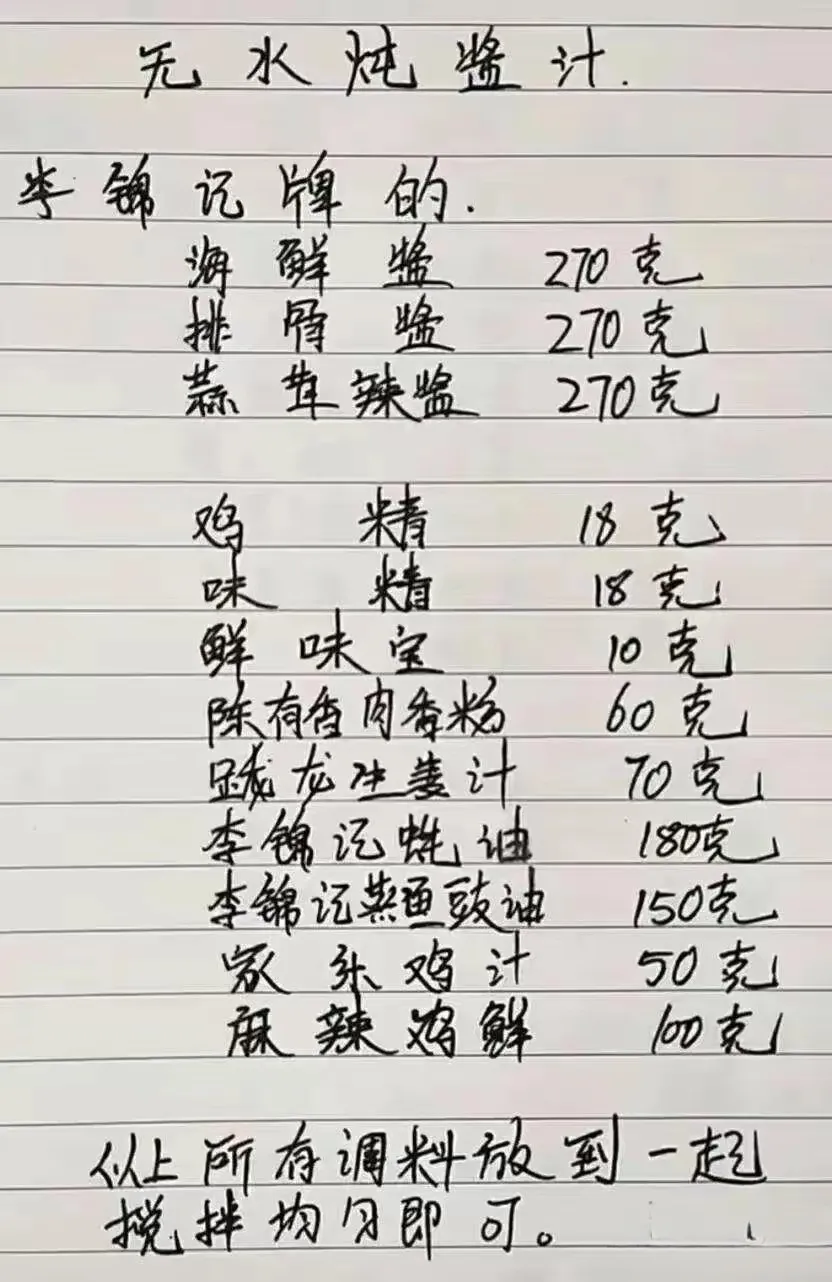 无水炖酱汁.
李锦记牌的.
海鲜酱 270克
排骨酱 270克
蒜茸辣酱 270克
鸡精 18克
味精 18克
鲜味宝 10克
陈有香肉香粉 60克
龙生姜汁 70克
李锦记蚝油 180克
李锦记蒸鱼豉油 150克
家乐鸡汁 50克
麻辣鸡鲜 100克
以上所有调料放到一起
搅拌均匀即可。